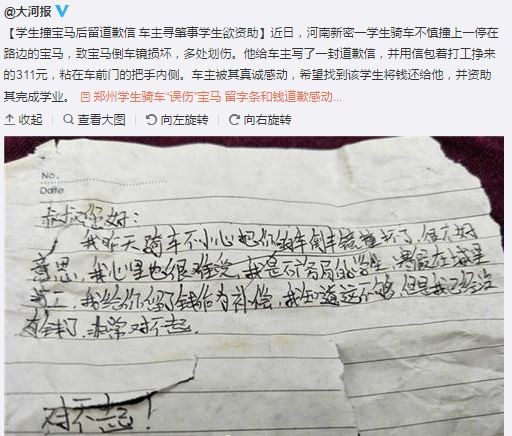 @大河报
【学生撞宝马后留道歉信 车主寻肇事学生欲资助】近日，河南新密一学生骑车不慎撞上一停在
路边的宝马，致宝马倒车镜损坏，多处划伤。他给车主写了一封道歉信，并用信包着打工挣来
的311元，粘在车前门的把手内侧。车主被其真诚感动，希望找到该学生将钱还给他，并资助
其完成学业。 郑州学生骑车“误伤”宝马 留字条和钱道歉感动...
收起 查看大图 向左旋转 向右旋转
No.
Date
叔叔您好：
我昨天骑车不小心把你的车倒车镜撞坏了，很不好
意思，我心里也很难受，我是一高的学生，暑假在这里
打工，我给你留了钱作为补偿，我知道这不够，但是我已经没
有钱了，非常对不起。
对不起！